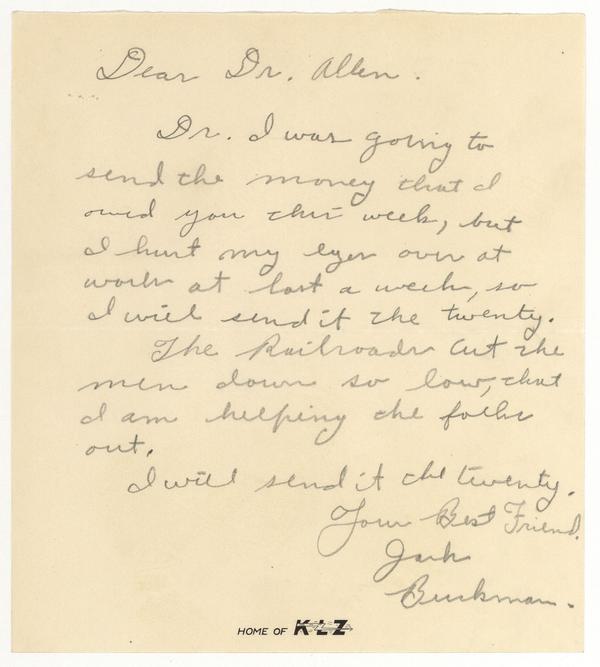 Dear Dr. Allen.
Dr. I was going to
send the money that I
owed you this week, but
I hurt my eyes over at
work at lost a week, so
I will send it the twenty.
The Railroads cut the
men down so low, that
I am helping the folks
out.
I will send it the twenty.
Your Best Friend.
Jack
Buckman.
HOME OF KLZ